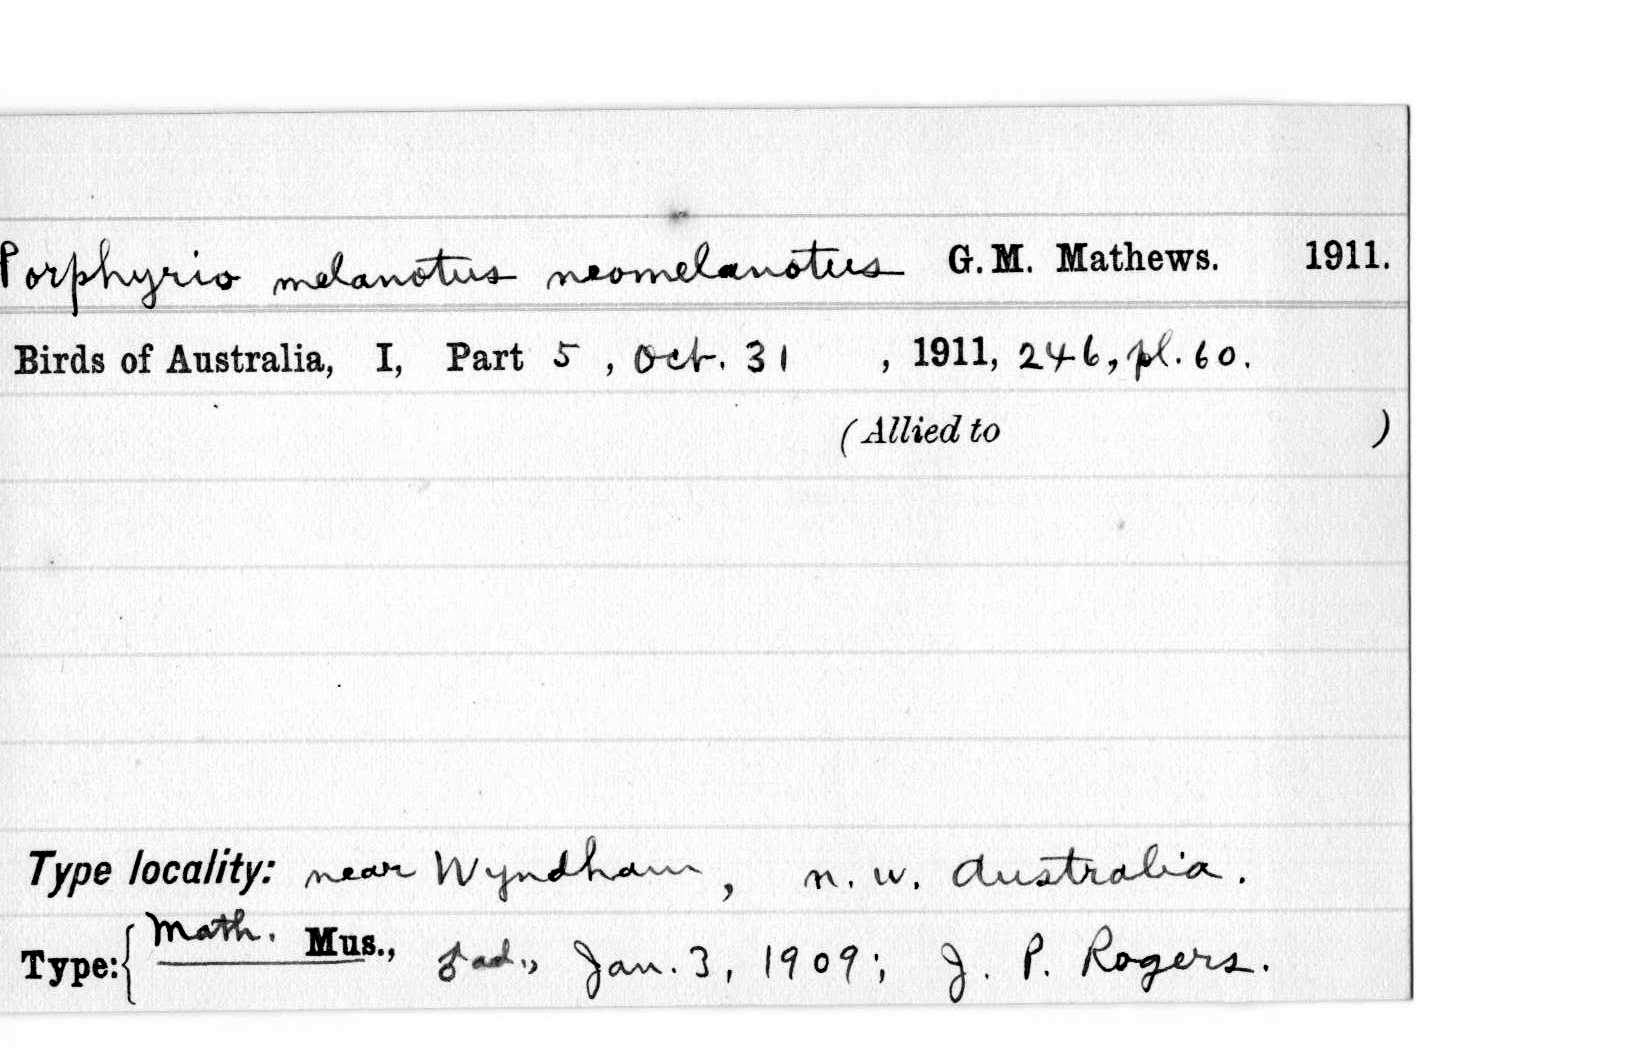 Porphyrio melanotus neomelanotus G. M. Mathews. 1911.
Birds of Australia, I, Part 5, Oct. 31, 1911, 246, pl. 60.
(Allied to )
Type locality: near Wyndham, n. w. Australia.
Type: { Math. Mus., ad., Jan. 3, 1909; J. P. Rogers.